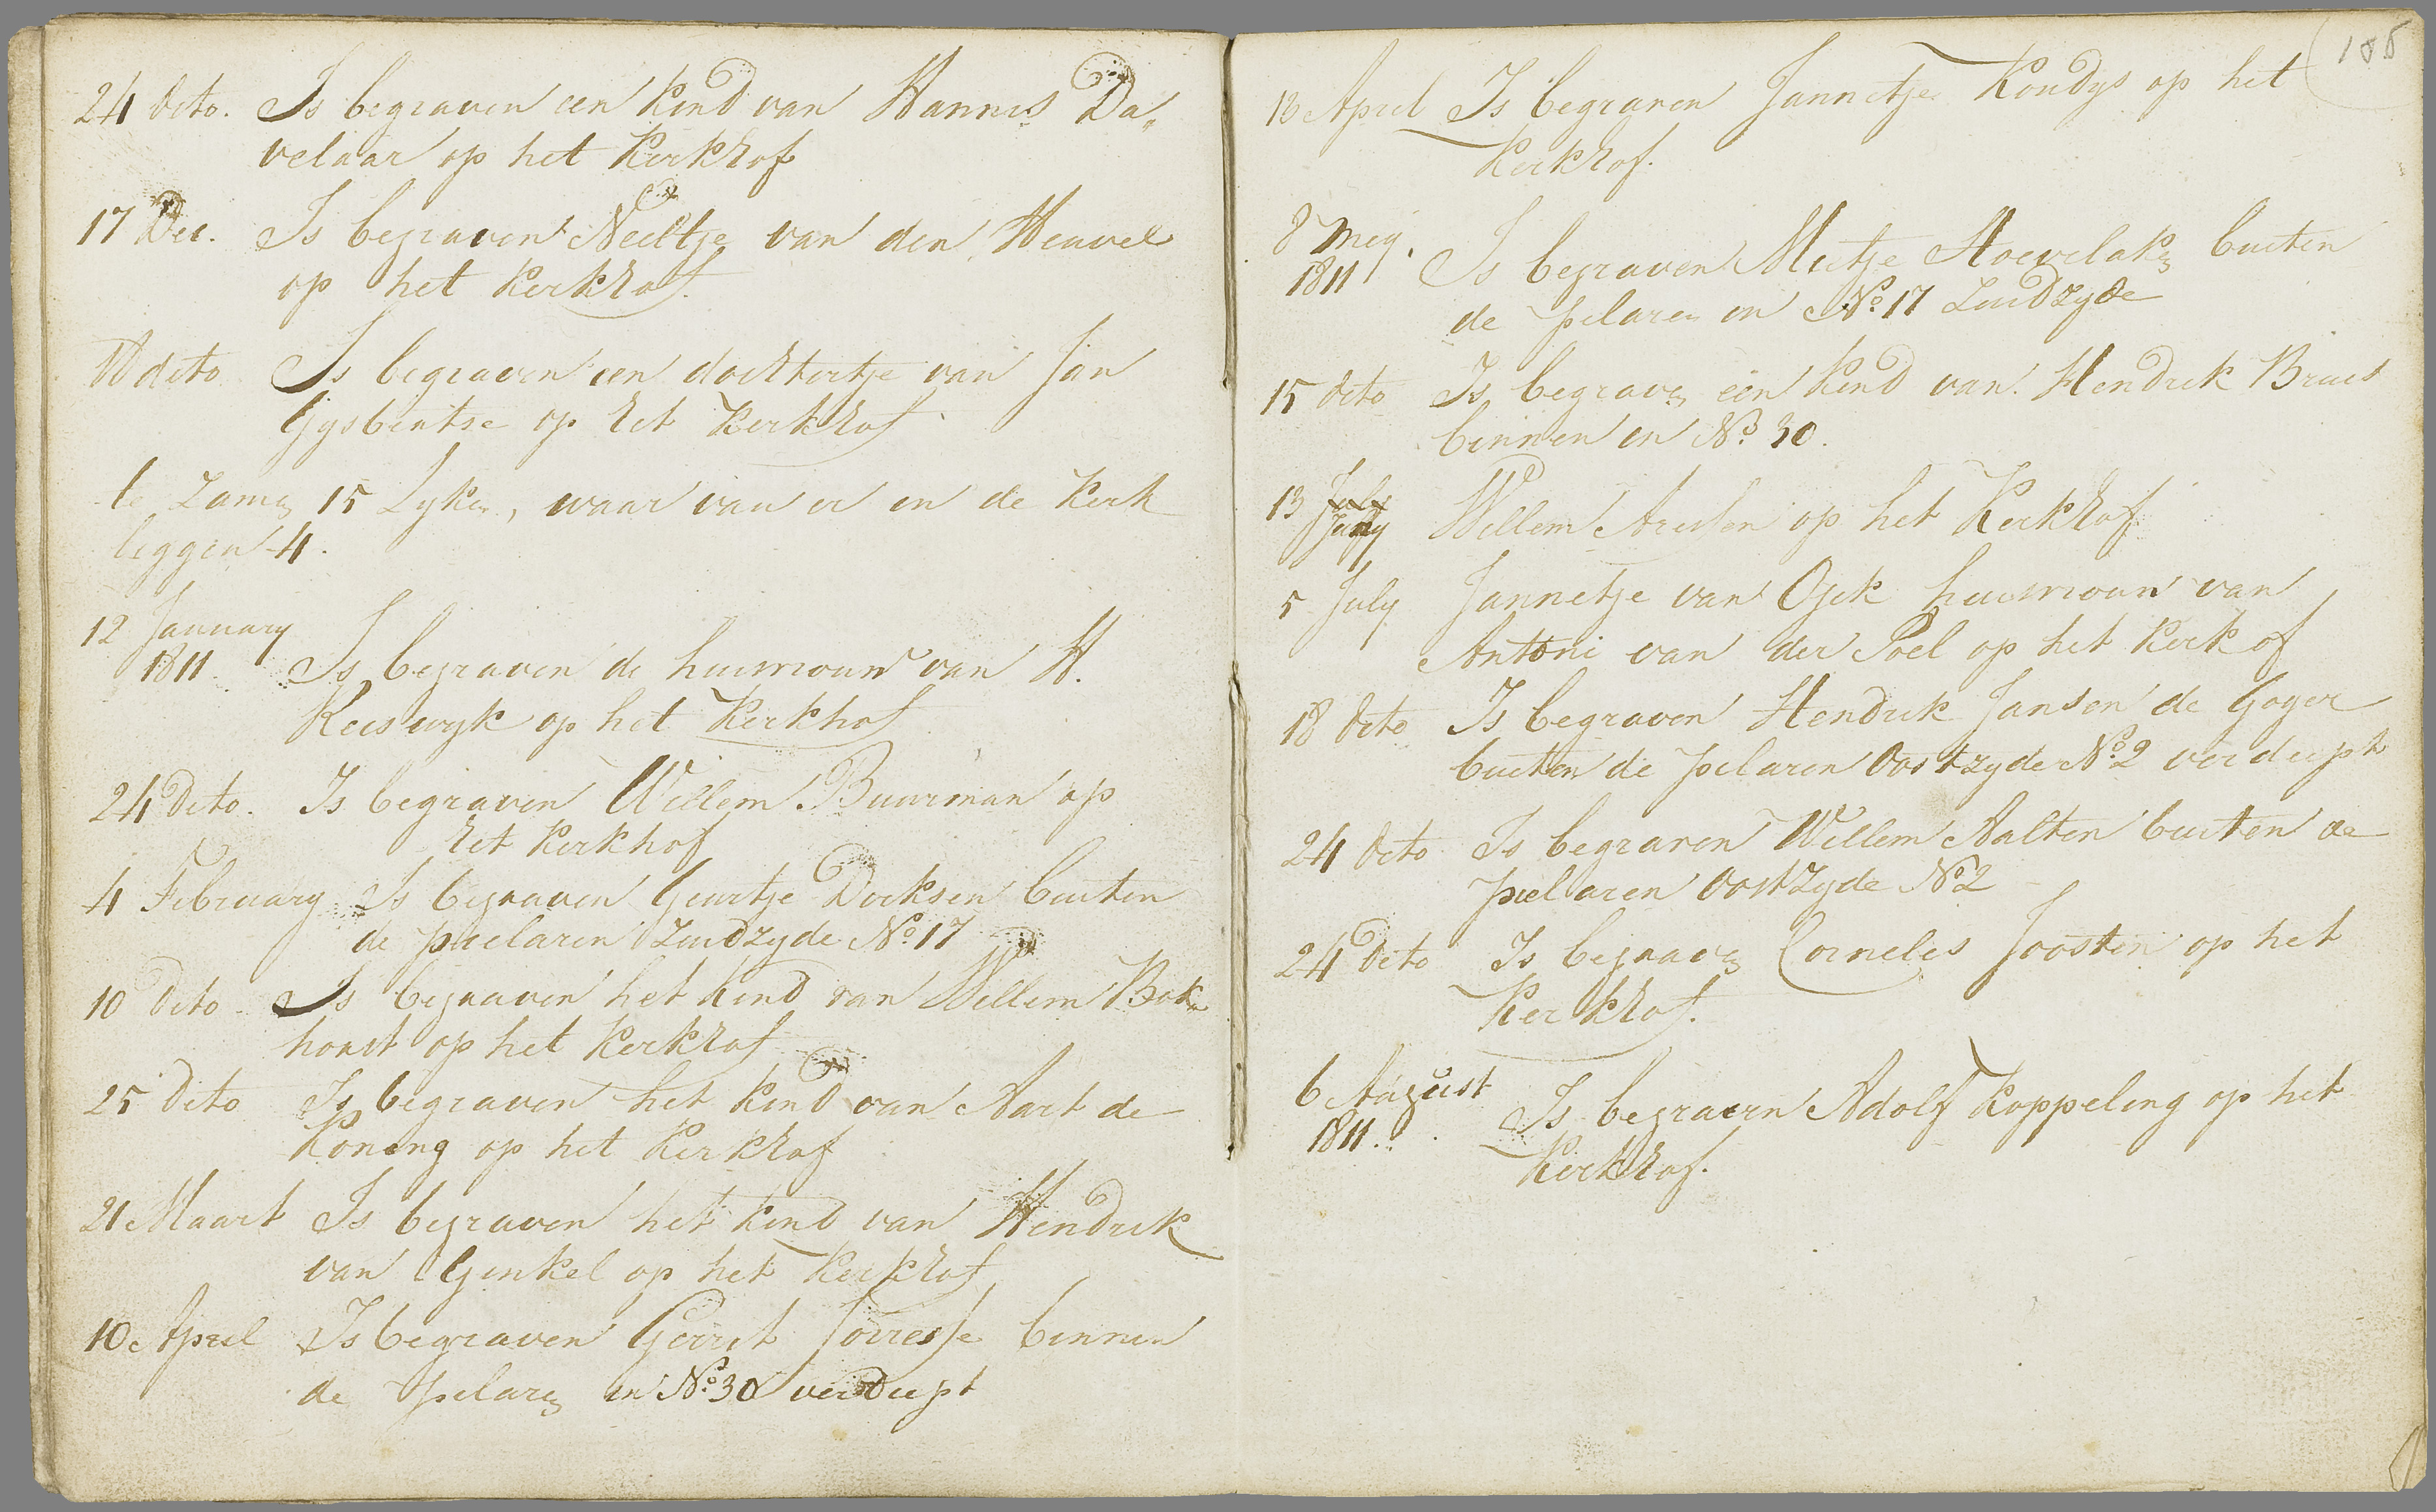 24 dito. Is begraven een kind van Hannes Da„
velaar op het kerkhof
17 Dec. Is begraven Neeltje van den Heuvel
op het kerkhof.
dito Is begraven een dochtertje van Jan
Gysbertse op het kerkhof
te zamen 15 Lyken, waar van er in de kerk
leggen 4.
12 January
1811. Is begraven de huisvrouw van H.
Reeswyk op het kerkhof
24 Dito. Is begraven Willem Buurman op
het kerkhof
4 February Is begraven Geurtje Dirksen buiten
de pielaren Zuidzyde No. 17
10 dito Is begraven het kind van Willem Bok„
horst op het kerkhof
25 dito Is begraven het kind van Aart de
Koning op het kerkhof
21 Maart Is begraven het kind van Hendrik
van Ginkel op het kerkhof
10 April Is begraven Gerrit Jorresse binnen
de pilaren in No. 30 verdiept
185
18 April Is begraven Jannetje Kondys op het
Kerkhof.
8 Mey.
1811 Is begraven Metje Hoevelaken buiten
de pilaren in No. 17 Zuidzyde
15 dito Is begraven een kind van Hendrik Bruis
binnen in No. 30.
13 July
Juny Willem Aressen op het Kerkhof
5 July Jannetje van Eck huisvrouw van
Antoni van der Poel op het kerkhof
18 dito Is begraven Hendrik Jansen de Goyer
buiten de pilaren Oostzyde No. 2 verdiept
24 dito Is begraven Willem Aalten buiten de
pielaren Oostzyde No 2
24 Dito Is begraven Cornelis Joosten op het
Kerkhof.
6 August
1811. Is begraven Adolf Koppeling op het
Kerkhof.